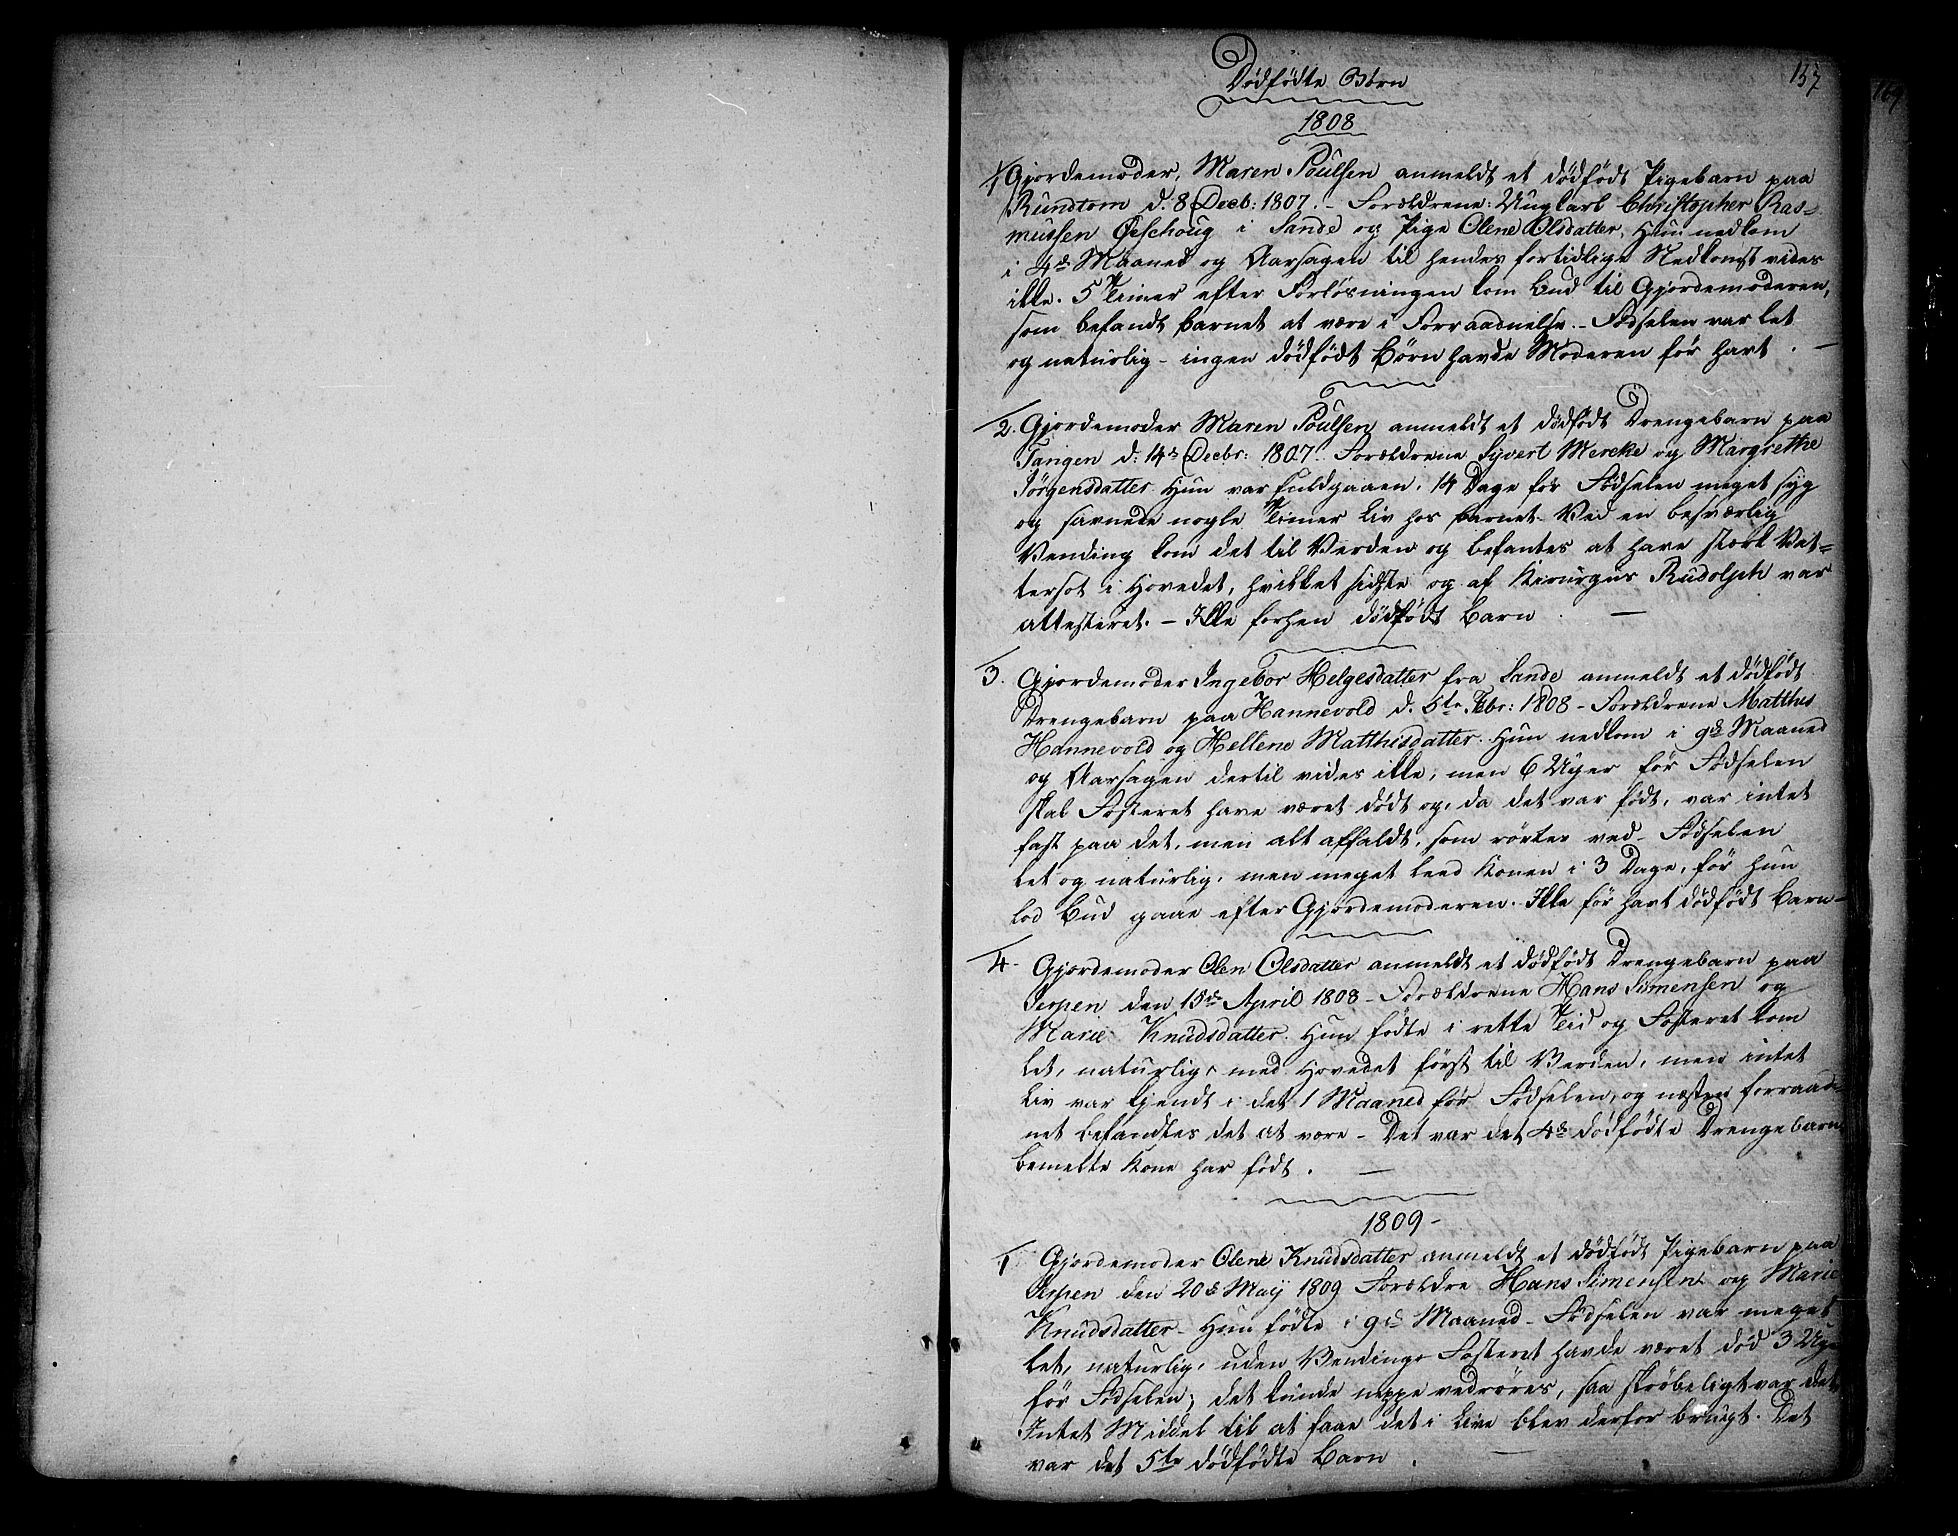 157
169
Dødfødte Børn
1808
1/ Gjordemoder, Maren Poulsen anmeldt et dødfødt Pigebarn paa
Rundtom d: 8 Decb: 1807. - Forældrene: Ungkarl Christopher Ras=
mussen Øeschoug i Sande og Pige Olene Olsdatter. Hun nedkom
i 4de Maaned og Aarsagen til hendes fortidlige Nedkomst vides
ikke. 5 Timer efter Forløsningen kom Bud til Gjordemoderen,
som befandt barnet at være i Forraadnelse. - Fødselen var let
og naturlig - ingen dødfødt Børn havde Moderen før havt. -
2. Gjordemoder Maren Poulsen anmeldt et dødfødt Drengebarn paa
Tangen d: 14de Decbr: 1807. Forældrene Syvert Mercke og Margrethe
Jørgensdatter. Hun var fuldgaaen. 14 Dage før Fødselen meget syg
og savnede nogle Timer Liv hos barnet. Ved en besværlig
Vending kom det til Verden og befantes at have stærk Vat=
tersot i Hovedet, hvilket sidste og af Kirurgus Rudolph var
attesteret. - Ikke forhen dødfødt Barn. -
3. Gjordemoder Ingebor Helgesdatter fra Sande anmeldt et dødfødt
Drengebarn paa Hannevold d. 5te Febr: 1808 - Forældrene Matthis
Hannevold og Hellene Matthisdatter. Hun nedkom i 9de Maaned
og Aarsagen dertil vides ikke, men 6 Uger før Fødselen
skal Fosteret have været dødt og, da det var født, var intet
fast paa det, men alt affaldt, som rørtes ved. Fødselen
let og naturlig, men meget leed Konen i 3 Dage, før hun
lod Bud gaae efter Gjordemoderen. Ikke før havt dødfødt Barn -
4. Gjordemoder Olen Olsdatter anmeldt et dødfødt Drengebarn paa
Serpen den 15de April 1808 - Forældrene Hans Simensen og
Marie Knudsdatter. Hun fødte i rette Tid og Fosteret kom
let, naturlig, med Hovedet først til Verden, men intet
Liv var kjendt i det 1 Maaned før Fødselen, og næsten forraad=
net befandtes det at være - Det var det 4de dødfødte Drengebarn
bemeldte Kone har født. -
1809 -
1. Gjordemoder Olene Knudsdatter anmeldt et dødfødt Pigebarn paa
Serpen den 20de May 1809 Forældre Hans Simensen og Marie
Knudsdatter - Hun fødte i 9de Maaned - Fødselen var meget
let, naturlig, uden Vending. Fosteret havde været død 3 Uger
før Fødselen; det kunde neppe vedrøres, saa skrøbeligt var det
Intet Middel til at faae det i Live blev derfor brugt. Det
var det 5te dødfødte Barn. -